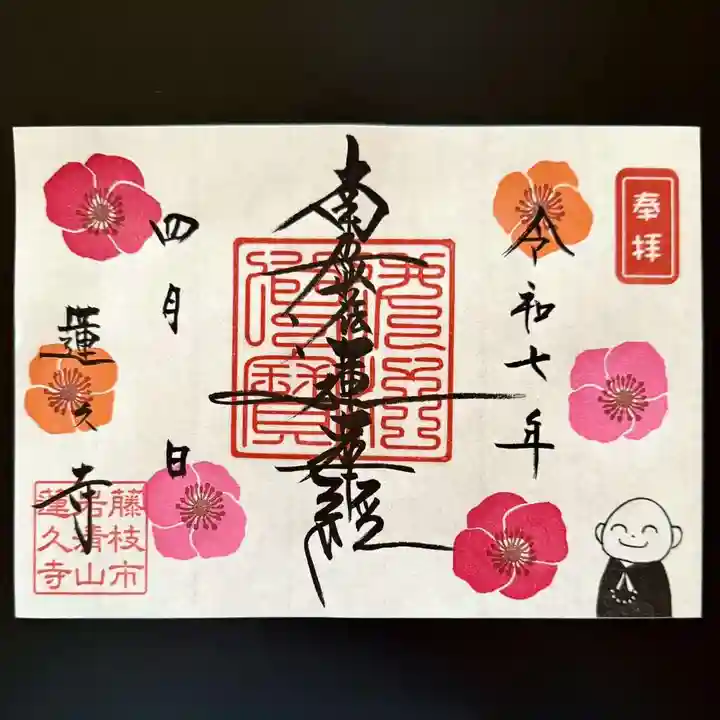 奉拝
令和七年
南無妙法蓮華経
四月 日
蓮久寺
藤枝市
岩清山
蓮久寺